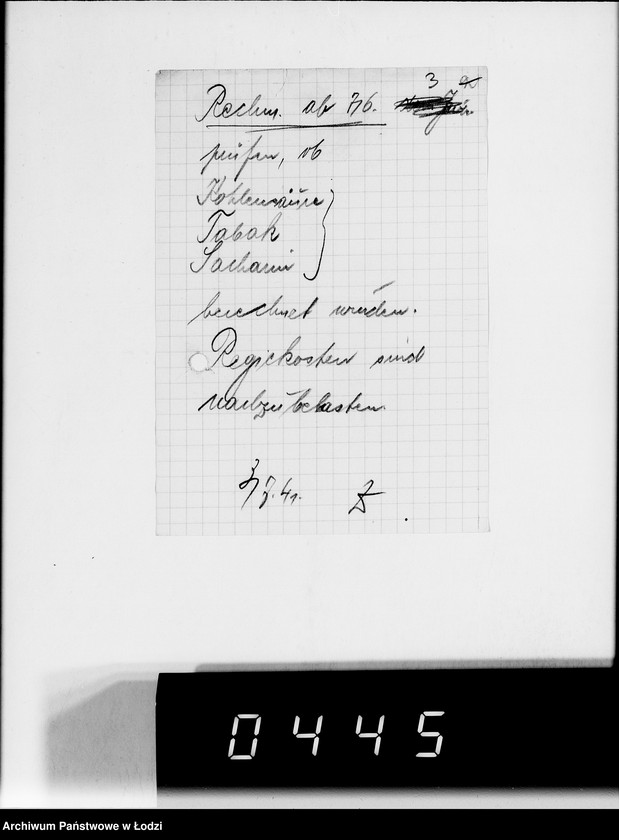 3
Rechn. ab 7/6.
prüfen, ob
Kohlensäure
Tabak
Sacharin
berechnet wurden.
Regiekosten sind
nachzubelasten.
3/7.41.
0445
Archiwum Państwowe w Łodzi